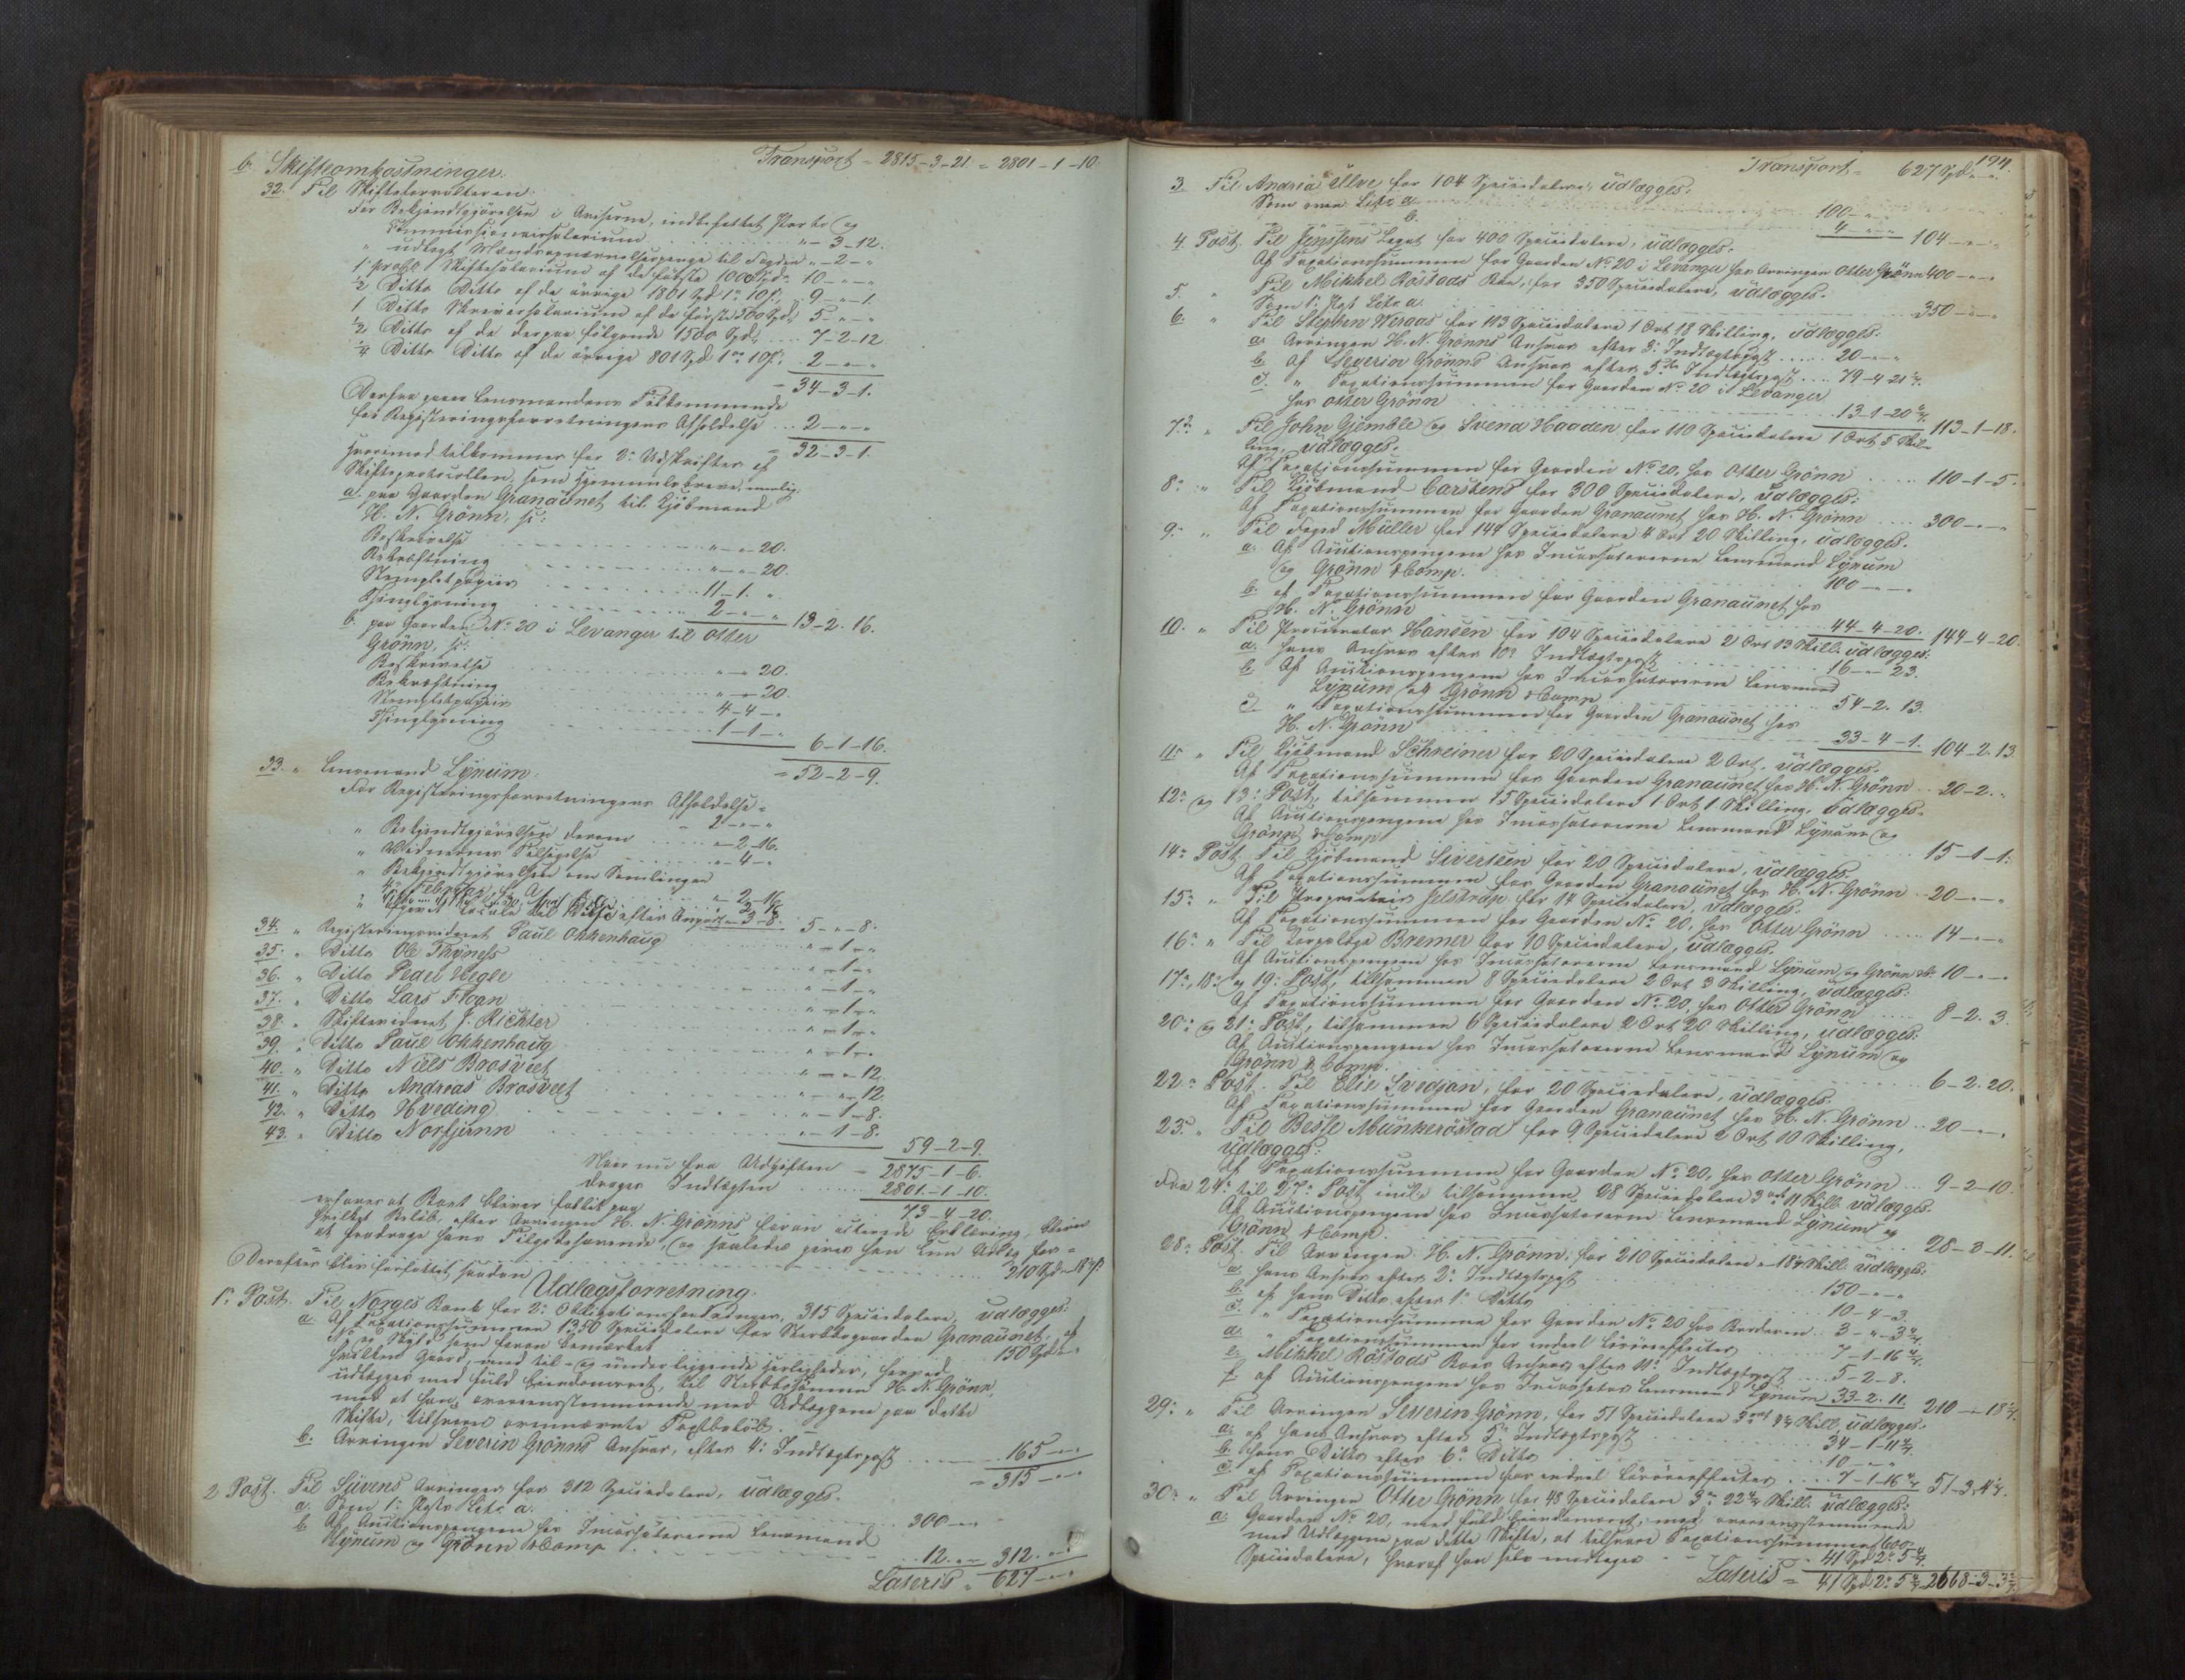 b. Skifteomkostninger. Transport = 2815-3-21. = 2801-1-10.
32. Til Skifteforvalteren:
For Bekjendtgjörelsen i Aviserne, indbefattet Porto og
Commissionairsalarium " - 3 - 12.
" udlagt Mandsopnævnelsespenge til Fogden " - 2 - "
1 proCt. Skiftesalarium af de første 1000 Spd. 10 - " - "
½ Ditto Ditto af de övrige 1801 Spd. 1 ort 10 s. 9 - " - 1.
1 Ditto Skriversalarium af de første 500 Spd. 5 - " - "
½ Ditto af de derpaa følgende 1500 Spd. 7 - 2 - 12
¼ Ditto Ditto af de övrige 801 Spd. 1 ort 10 s. 2 - " - "
= 34 - 3 - 1.
Derfra gaaer Lensmandens Tilkommende
for Registreringsforretningens Afholdelse .. 2 - " - "
= 32 - 3 - 1.
hvorimod tilkommer for 2de Udskrifter af
Skifteprotocollen, som Hjemmelsbreve, nemlig:
a. paa Gaarden Granaunet til Kjöbmand
H. N. Grönn,
Beskrivelse " - " - 20.
Bekræftning " - " - 20.
Stemplet papiir 11 - 1. "
Thinglysning 2 - " - " 13 - 2 - 16.
b. paa Gaarden No 20 i Levanger til Otter
Grönn,
Beskrivelse " - " 20.
Bekræftning " - " 20.
Stempletpapiir 4 - 4 - "
Thinglysning 1 - 1 - "
6 - 1 - 16.
= 52 - 2 - 9.
33. " Lensmand Lynum:
For Registreringsforretningens Afholdelse = 2 - " - "
" Bekjendtgjörelsen derom " - 2 - 16.
" Vidnernes Tilsigelse " - 4 - "
" Bekjendtgjörelsen om Samlingen
" - 2 - 16
5 - " - 8.
34. " Registreringsvidnet Paul Okkenhaug " - 1 - "
35. " Ditto Ole Thyness " - 1 - "
36. " Ditto Peder Hegle " - 1 - "
37. " Ditto Lars Floan " - 1 - "
38. " Skiftevidnet J. Richter " - 1 - "
39. " Ditto Paul Okkenhaug " - 1 - "
40. " Ditto Niels Brosveet " - " - 12.
41. " Ditto Andreas Brosveet " - " - 12.
42. " Ditto Hveding " - 1 - 8.
43. " Ditto Norfjernn " - 1 - 8.
59 - 2 - 9.
Naar nu fra Udgiften = 2875 - 1 - 6.
drages Indtægten 2801 - 1 - 10.
erfares at Boet bliver fallit paa 73 - 4 - 20.
hvilket Belöb, efter Arvingen H. N. Grönns foran citerede Erklæring, bliver
at fradrage hans Tilgodehavende, og saaledes gives ham kun Udlæg for =
210 Spd
Derefter blev forfattet saadan Udlægsforretning.
1e Post. Til Norges Bank for 2de Obligationsfordringer, 315 Speciedaler, udlægges:
a. Af Taxationssummen 1350 Speciedaler for Sterbbogaarden Granaunet, af
No og Skyld som foran bemærket 150 Spd " "
hvilken Gaard, med til- og underliggende Herligheder, herved
udlægges med fuld Eiendomsret, til Sterbbosönnen H. N. Grönn,
mod at han, overeensstemmende med Udlæggene paa dette
Skifte, tilsvarer ovennævnte Taxtbelöb. -
b. Arvingen Severin Grönns Ansvar, efter 4de Indtægtspost 165 - " - "
= 315 - " - "
2 Post. Til Süvens Arvinger for 312 Speciedaler, udlægges.
a. Som 1e Posts Litr. a. 300 - " - "
b. Af Auctionspengene hos Incassatorerne Lensmand
Lynum og Grönn & Comp. 12. " - " 312. - " - "
Lateris = 627 - " - "
194.
Transport = 627 Spd. - " - "
3. Til Andria Ulve for 104 Speciedaler, udlægges.
Som oven Litr a. 100 - " - "
b. 4 - " - " 104 - " - "
4. Post. Til Jenssens Legat for 400 Speciedaler, udlægges.
Af Taxationssummen for Gaarden No 20 i Levanger hos Arvingen Otter Grönn 400 - " - "
5. " Til Mikkel Röstads Boe, for 350 Speciedaler, udlægges.
Som 1e Post Litr a. 350 - " - "
6. " Til Stephen Weraas for 113 Speciedaler 1 Ort 18 Skilling, udlægges:
a. Arvingen H. N. Grönns Ansvar efter 3de Indtægtspost 20 - " - "
b. Af Severin Grönns Ansvar efter 5te Indtægtspost 79 - 4 - 21
c. " Taxationssummen for Gaarden No 20 i Levanger
hos Otter Grönn 13 - 1 - 20 113 - 1 - 18.
7de " Til John Gjemble og Svend Haaden for 110 Speciedaler 1 Ort 5 Skil-
ling, udlægges.
Af Taxationssummen for Gaarden No 20, hos Otter Grönn 110 - 1 - 5.
8de " Til Kjöbmand Carstens for 300 Speciedaler, udlægges:
Af Taxationssummen for Gaarden Granaunet hos H. N. Grönn 300 - " - "
9de " Til Foged Müller for 144 Speciedaler 4 Ort 20 Skilling, udlægges.
a. Af Auctionspengene hos Incassatorerne Lensmand Lynum
og Grönn & Comp. 100 - " - "
b. af Taxationssummen for Gaarden Granaunet hos
H. N. Grönn 44 - 4 - 20. 144 - 4 - 20.
10. " Til Procurator Hansen for 104 Speciedaler 2 Ort 13 Skill. udlægges:
a. hans Ansvar efter 10de Indtægtspost 16 - " - 23.
b. Af Auctionspengene hos Incassatorerne Lensmand
Lynum og Grönn & Comp. 54 - 2. 13.
c. " Taxationssummen for Gaarden Granaunet hos
H. N. Grönn 33 - 4 - 1. 104 - 2. 13
11 " Til Kjöbmand Schreiner for 20 Speciedaler 2 Ort, udlægges.
Af Taxationssummen for Gaarden Granaunet hos H. N. Grönn 20 - 2. "
12de og 13de Post, tilsammen 15 Speciedaler 1 Ort 1 Skilling, udlægges.
Af Auctionspengene hos Incassatorerne Lensmand Lynum og
Grönn & Comp. 15 - 1 - 1.
14de Post Til Kjöbmand Sivertsen for 20 Speciedaler, udlægges.
Af Taxationssummen for Gaarden Granaunet hos H. N. Grönn 20 - " - "
15de " Til Proprietair Jelstrup for 14 Speciedaler, udlægges.
Af Taxationssummen for Gaarden No 20, hos Otter Grönn 14 - " - "
16de " Til Corpslæge Bremer for 10 Speciedaler, udlægges.
Af Auctionspengene hos Incassatorerne Lensmand Lynum og Grönn & C. 10 - " - "
17de, 18de og 19de Post, tilsammen 8 Speciedaler 2 Ort 3 Skilling, udlægges:
Af Taxationssummen for Gaarden No 20, hos Otter Grönn 8 - 2. 3.
20de og 21de Post, tilsammen 6 Speciedaler 2 Ort 20 Skilling, udlægges:
Af Auctionspengene hos Incassatorerne Lensmand Lynum og
Grönn & Comp. 6 - 2. 20.
22de Post. Til Elie Svedjan, for 20 Speciedaler, udlægges.
Af Taxationssummen for Gaarden Granaunet hos H. N. Grönn 20 - " - "
23de " Til Besle Munkeröstad for 9 Speciedaler 2 Ort 10 Skilling,
udlægges:
Af Taxationssummen for Gaarden No 20, hos Otter Grönn 9 - 2 - 10.
Fra 24de til 27de Post incl. tilsammen 28 Speciedaler 3 ort 11 Skill. udlægges.
Af Auctionspengene hos Incassatorerne Lensmand Lynum og
Grönn & Comp. 28 - 3 - 11.
28de Post. Til Arvingen H. N. Grönn, for 210 Speciedaler " 18 Skill. udlægges:
a. hans Ansvar efter 2de Indtægtspost 150 - " - "
b. af hans Ditto efter 1e Ditto 10 - 4 - 3
c. " Taxationssumma for Gaarden No 20 hos Broderen 3 - " - 3
d. " Taxationssummen for endeel Lösöreeffecter 7 - 1 - 16
e. Mikkel Röstads Boes Ansvar efter 11te Indtægtspost 5 - 2 - 8.
f. af Auctionspengene hos Incassator Lensmand Lynum 33 - 2. 11. 210 - " - 18
29de " Til Arvingen Severin Grönn, for 51 Speciedaler 3 ort 4 Skill, udlægges:
a. af hans Ansvar efter 5te Indtægtspost 34 - 1 - 11
b. hans Ditto efter 6te Ditto 10 - " - "
c. af Taxationssummen for endeel Lösöreeffecter 7 - 1 - 16 51 - 3. 4
30te " Til Arvingen Otter Grönn for 48 Speciedaler 3 ort 22 Skill. udlægges:
a. Gaarden No 20, med fuld Eiendomsret, mod overeensstemmende
med Udlæggene paa dette Skifte, at tilsvare Taxationssummen 600
Speciedaler, hvoraf han selv modtager 41 Spd 2 ort 5
Lateris = 41 Spd 2 ort 5 2668 - 3 - 3